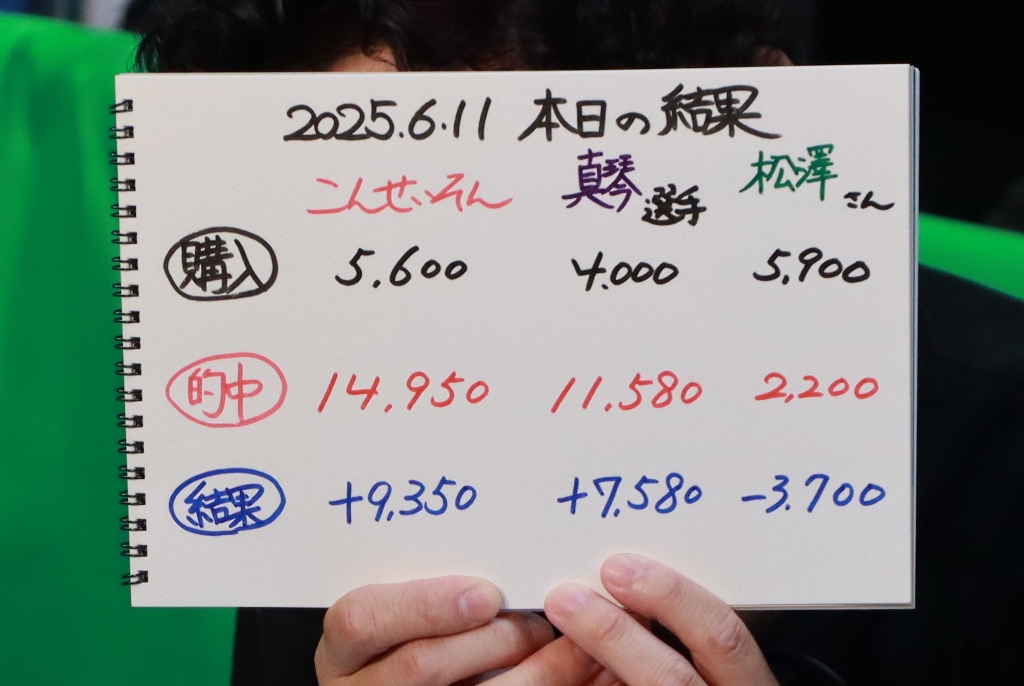 2025.6.11 本日の結果
こんせいそん 真琴選手 松澤さん
購入 5,600 4,000 5,900
的中 14,950 11,580 2,200
結果 +9,350 +7,580 -3,700